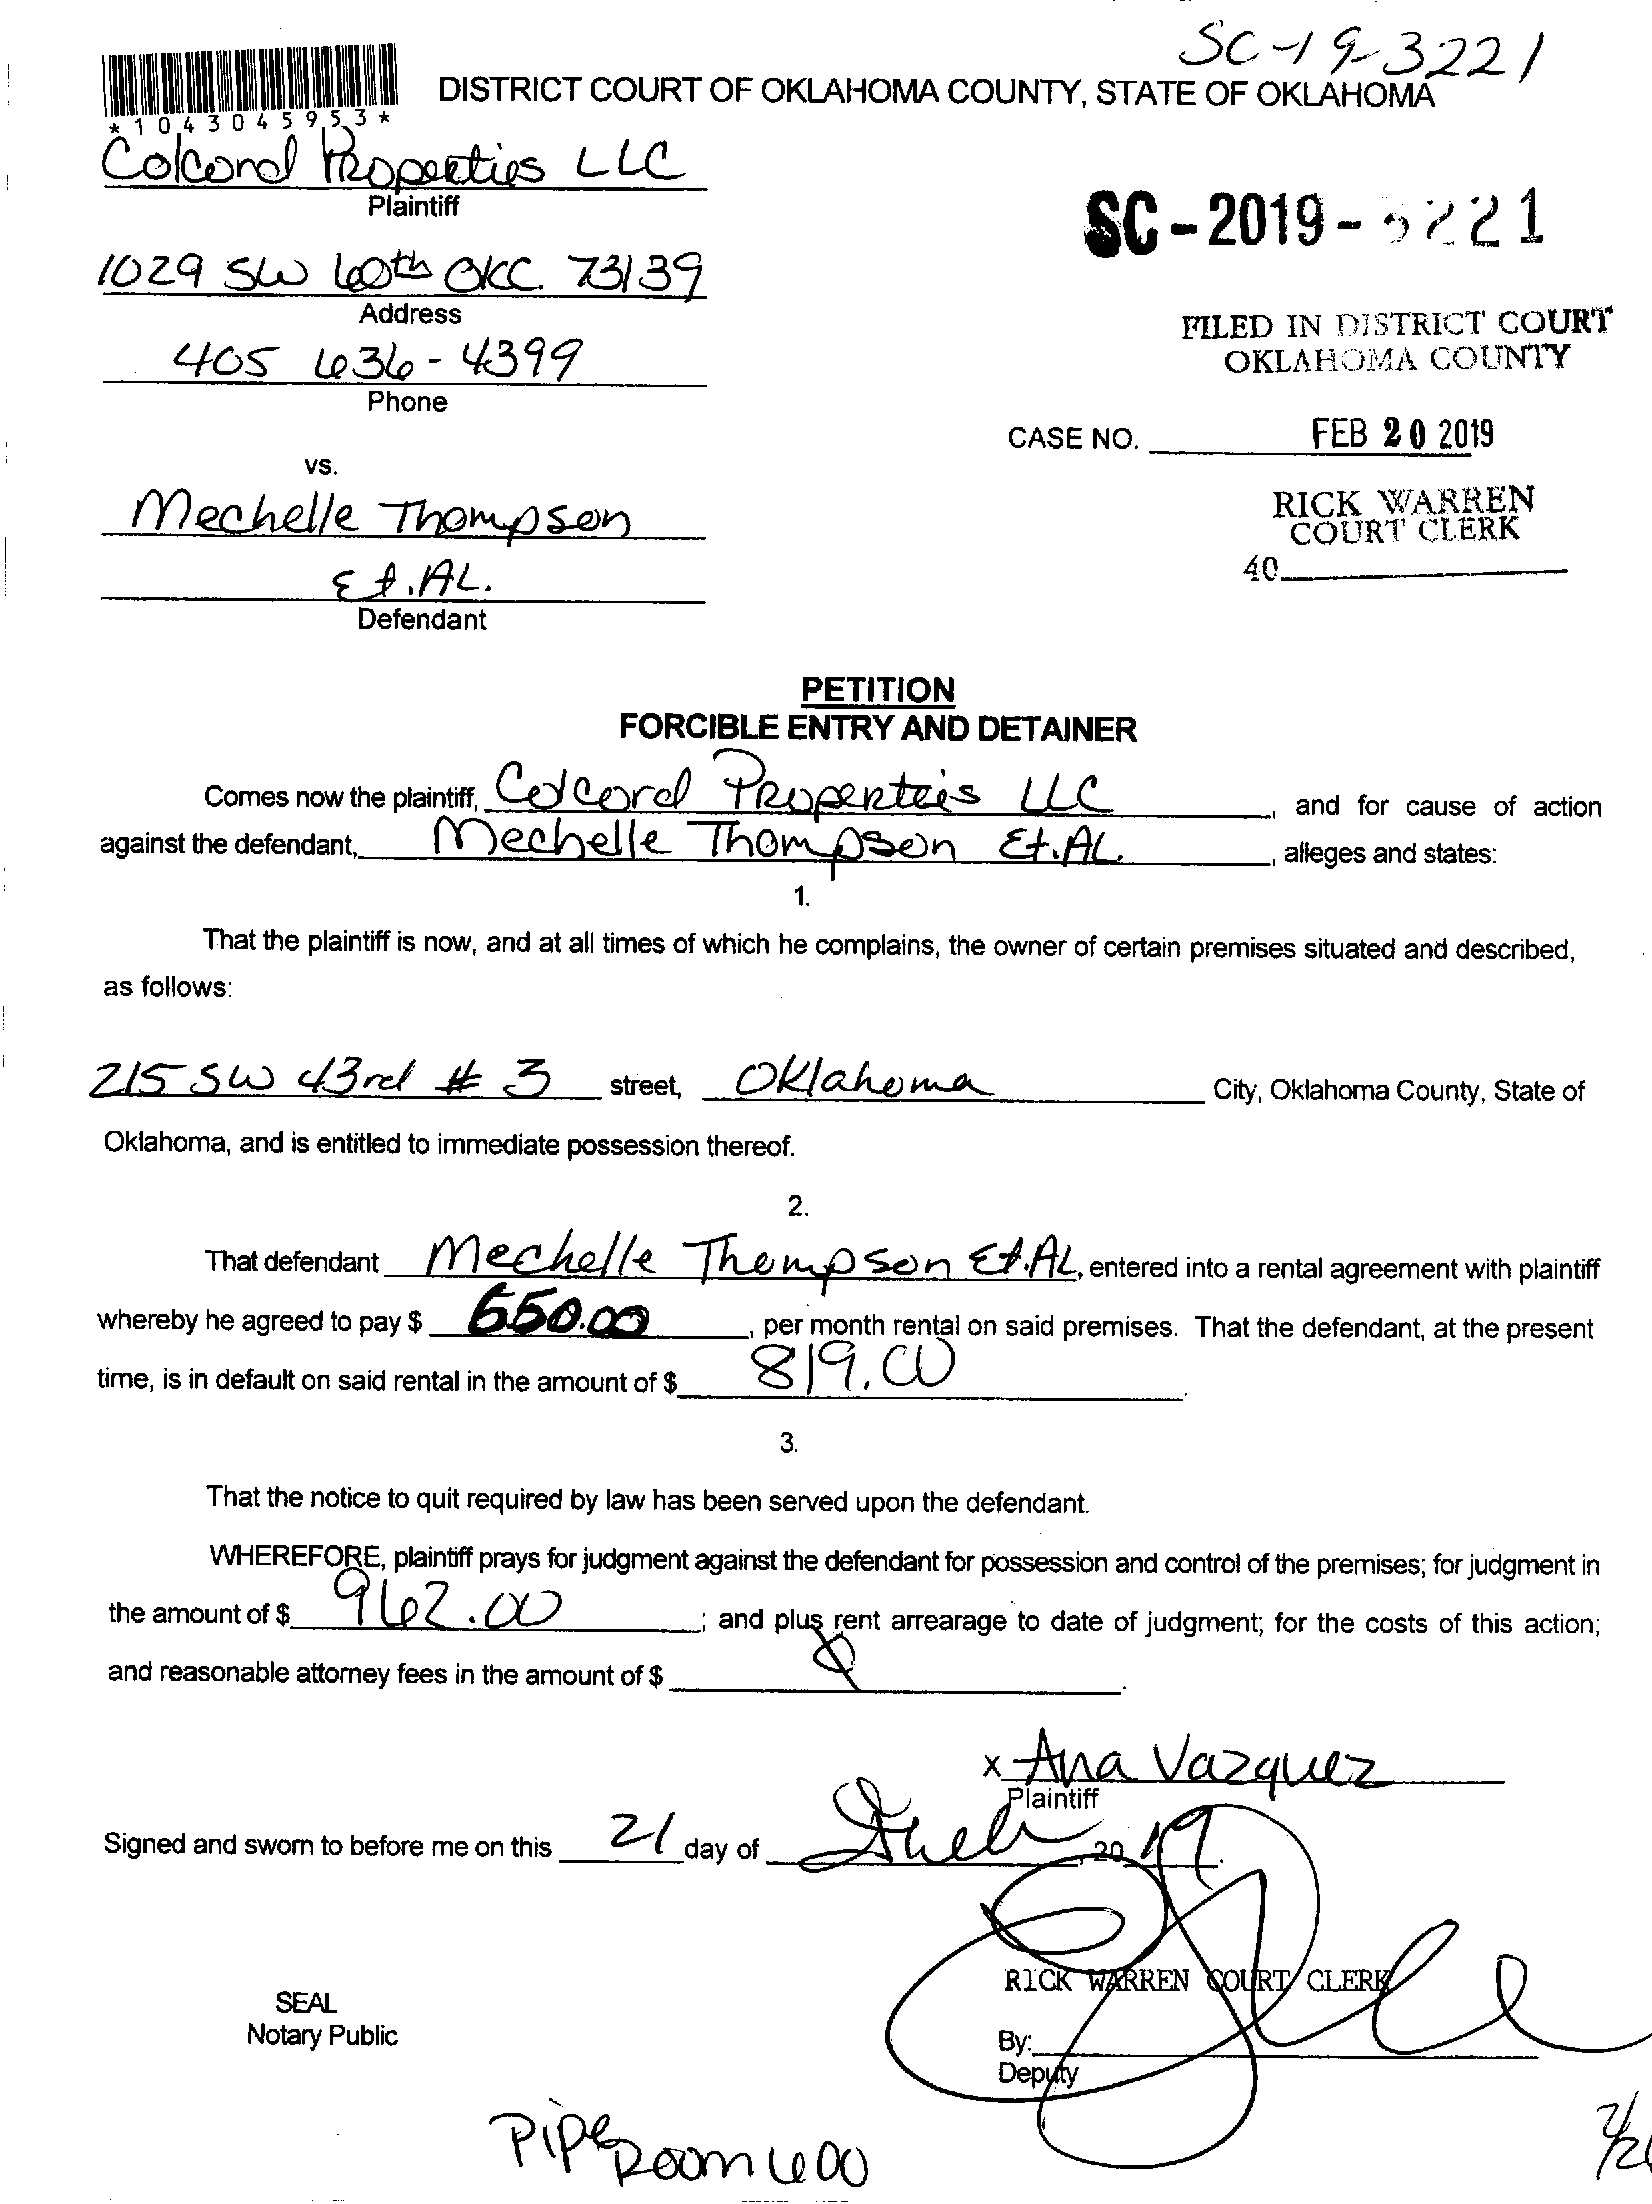 SC-19-3221
*1043045953*
DISTRICT COURT OF OKLAHOMA COUNTY, STATE OF OKLAHOMA
Colcord Properties LLC
Plaintiff
SC-2019-3221
1029 SW 60th OKC. 73139
Address
FILED IN DISTRICT COURT
OKLAHOMA COUNTY
405 636-4399
Phone
CASE NO. FEB 20 2019
vs.
RICK WARREN
COURT CLERK
Mechelle Thompson
40
Et.AL.
Defendant
PETITION
FORCIBLE ENTRY AND DETAINER
Comes now the plaintiff, Colcord Properteis LLC, and for cause of action
against the defendant, Mechelle Thompson Et.AL., alleges and states:
1.
That the plaintiff is now, and at all times of which he complains, the owner of certain premises situated and described,
as follows:
215 SW 43rd # 3 street, Oklahoma City, Oklahoma County, State of
Oklahoma, and is entitled to immediate possession thereof.
2.
That defendant Mechelle Thompson Et.AL, entered into a rental agreement with plaintiff
whereby he agreed to pay $ 650.00, per month rental on said premises. That the defendant, at the present
time, is in default on said rental in the amount of $ 819.00.
3.
That the notice to quit required by law has been served upon the defendant.
WHEREFORE, plaintiff prays for judgment against the defendant for possession and control of the premises; for judgment in
the amount of $ 962.00; and plus rent arrearage to date of judgment; for the costs of this action;
and reasonable attorney fees in the amount of $ .
x Ana Vazquez
Plaintiff
Signed and sworn to before me on this 21 day of , 20 19.
RICK WARREN COURT CLERK
SEAL
Notary Public
By:
Deputy
Pipe
Room 600